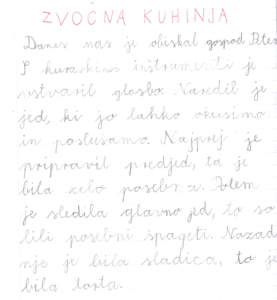 ZVOČNA KUHINJA
Danes nas je obiskal gospod Peter.
S kuraskimi inštrumenti je
vstvaril glasbo. Naredil je
jed, ki jo lahko okusimo
in poslušamo. Najprej je
pripravil predjed, ta je
bila zelo posebna. Potem
je sledila glavno jed, to so
bili posebni špageti. Nazad
nje je bila sladica, to je
bila torta.